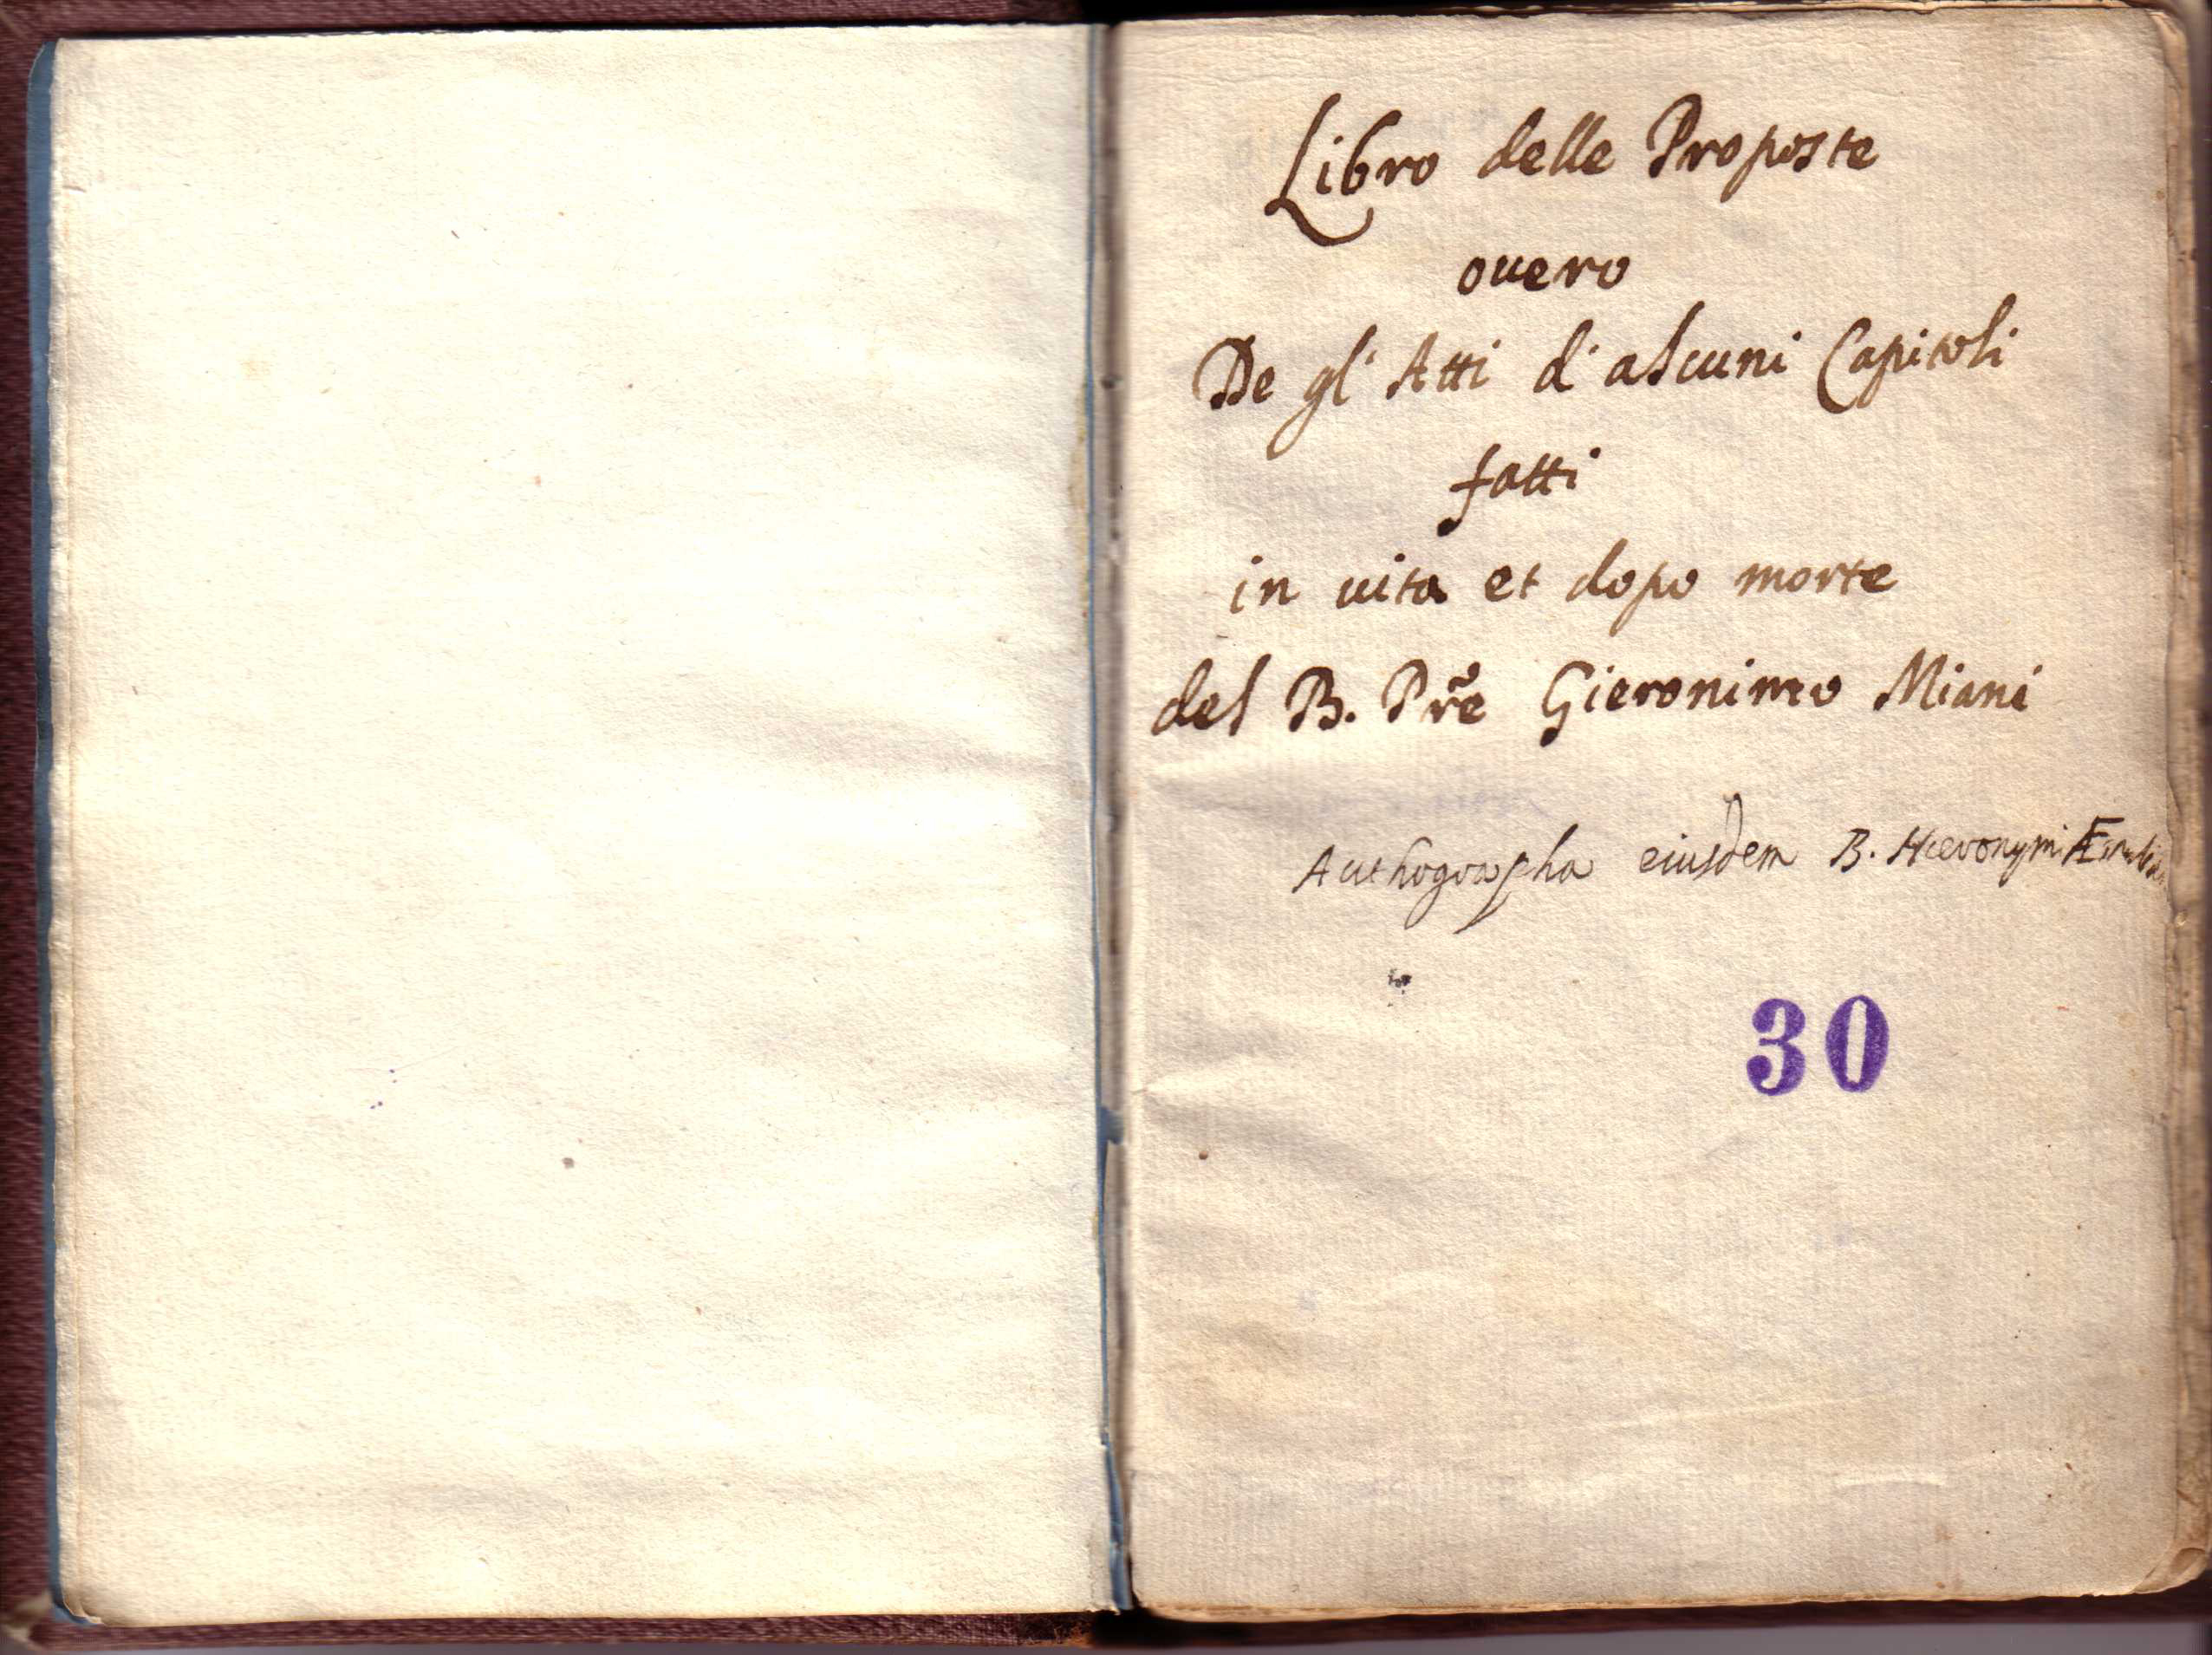 Libro delle Proposte
ouero
De gl' Atti d' alcuni Capitoli
fatti
in uita et dopo morte
del B. Pr̃e Gieronimo Miani
Authographa eiusdem B. Hieronymi
30